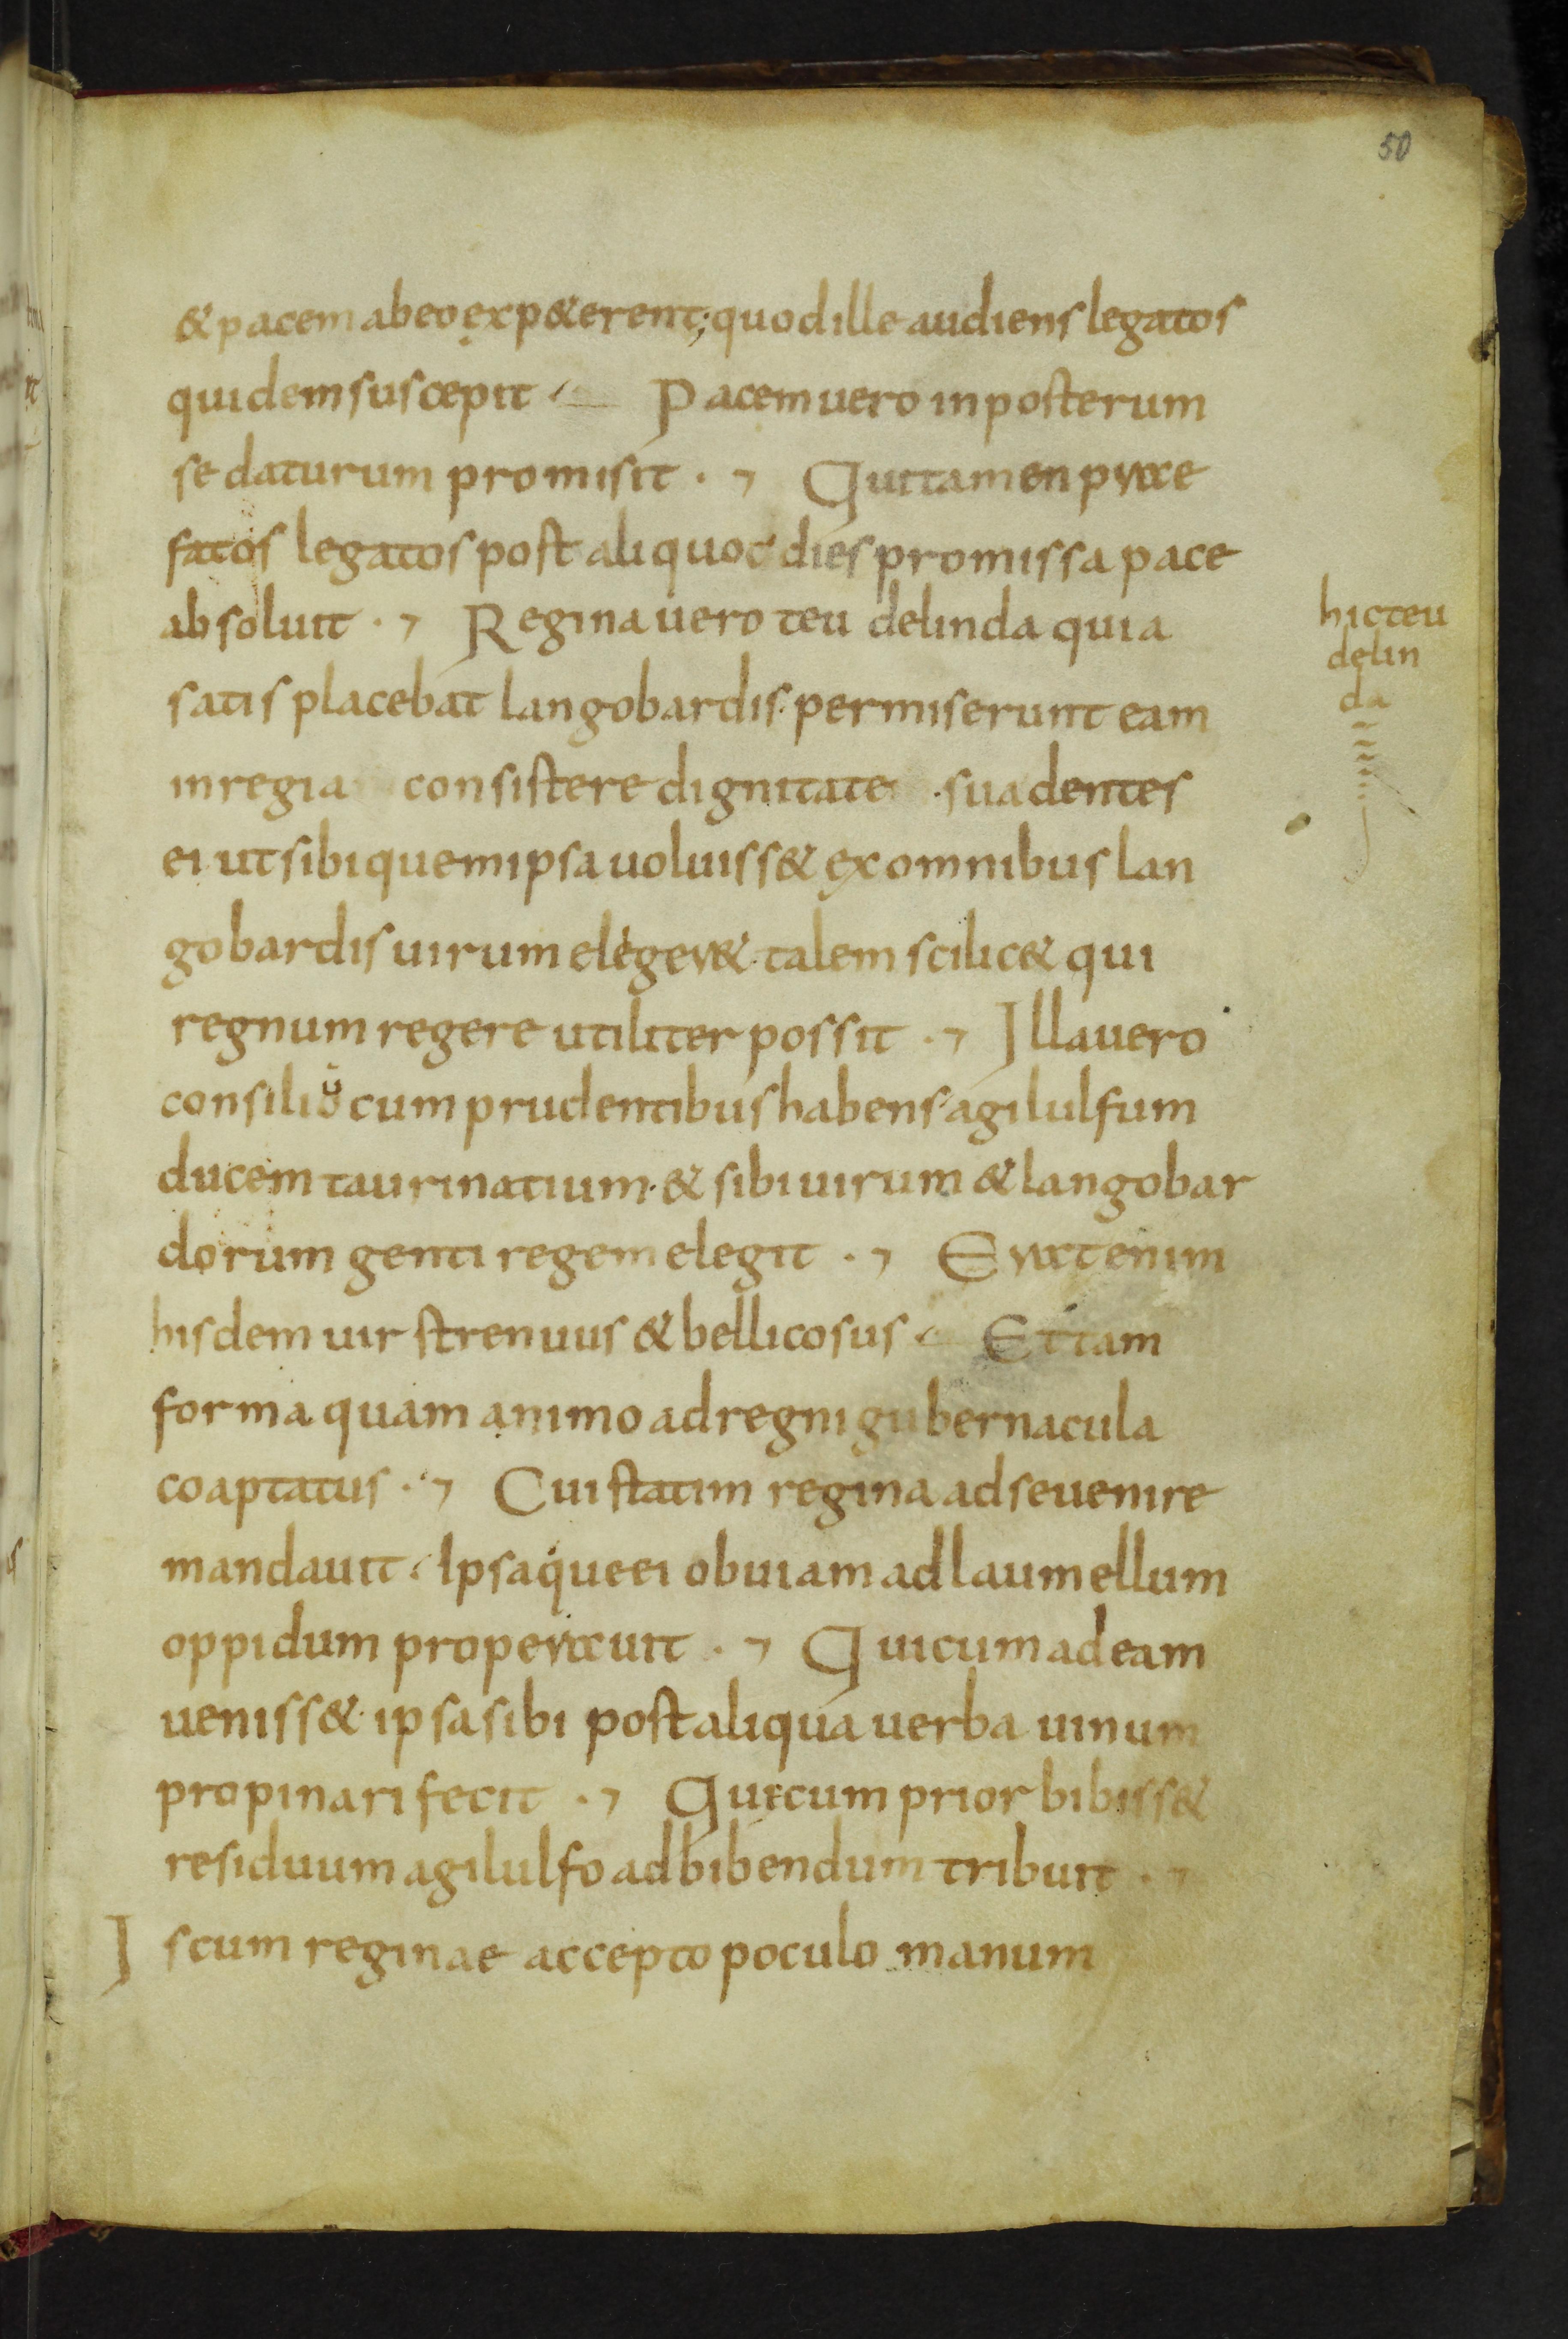 50
& pacem ab eo exp&erent; quod ille audiens legatos
quidem suscepit Pacem uero in posterum
se daturum promisit · ⁊ Qui tamen prae
fatos legatos post aliquot dies promissa pace
absoluit · ⁊ Regina uero teudelinda quia
satis placebat langobardis · permiserunt eam
in regia consistere dignitate · suadentes
ei ut sibi quem ipsa uoluiss& ex omnibus lan
gobardis uirum eleger& · talem scilic& qui
regnum regere utiliter possit · ⁊ Illa uero
consiliu cum prudentibus habens · agilulfum
ducem taurinatium · & sibi uirum & langobar
dorum genti regem elegit · ⁊ Erat enim
hisdem uir strenuus & bellicosus Et tam
forma quam animo ad regni gubernacula
coaptatus · ⁊ Cui statim regina ad se uenire
mandauit · Ipsaque ei obuiam ad laumellum
oppidum properauit · ⁊ Qui cum ad eam
ueniss& · ipsa sibi post aliqua uerba uinum
propinari fecit · ⁊ Quae cum prior bibiss&
residuum agilulfo ad bibendum tribuit · ⁊
Is cum reginae accepto poculo manum
hic teu
delin
da